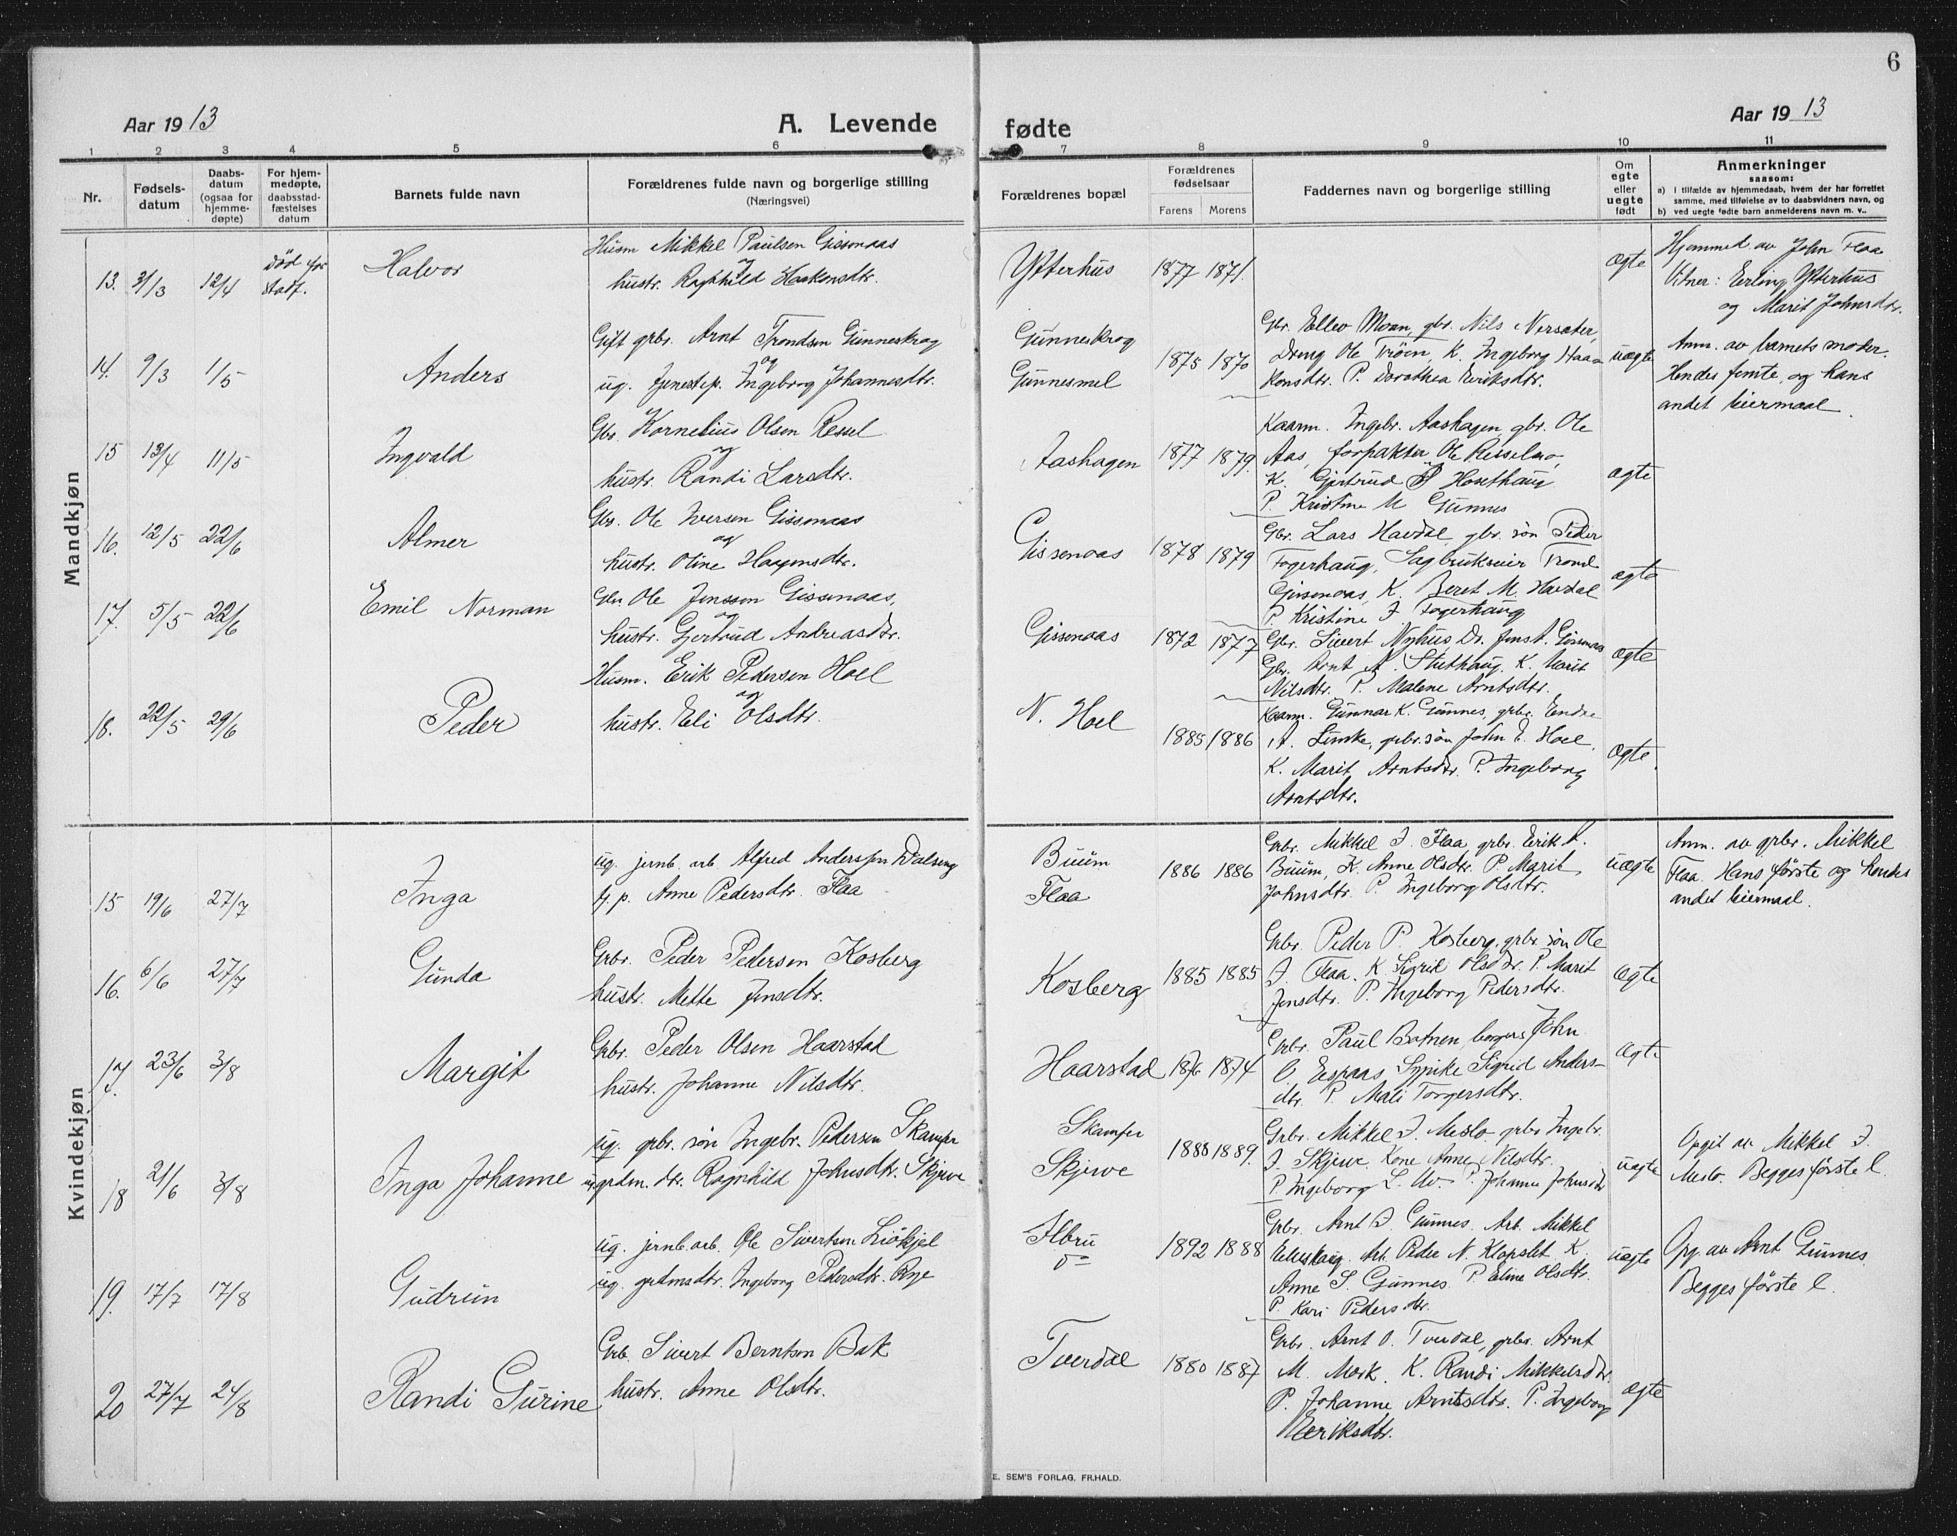 6
Aar 1913
A. Levende fødte
Aar 1913
1 2 3 4 5 6 7 8 9 10 11
Nr.
Fødselsdatum
Daabsdatum (ogsaa for hjemmedøpte)
For hjemmedøpte, daabsstadfæstelses datum
Barnets fulde navn
Forældrenes fulde navn og borgerlige stilling
(Næringsvei)
Forældrenes bopæl
Forældrenes fødselsaar
Farens Morens
Faddernes navn og borgerlige stilling
Om egte eller uegte født
Anmerkninger
saasom:
a) i tilfælde av hjemmedaab, hvem der har forrettet samme, med tilføielse av to daabsvidners navn, og
b) ved uegte fødte barn anmelderens navn m. v..
Mandkjøn
13. 3/3 12/4 død før stadf. Halvor
Husm Mikkel Paulsen Gissenaas
og
hustr. Ragnhild Haakonsdtr.
Ytterhus 1877 1871. ægte
Hjemmed. av John Flaa
Vitner: Erling Ytterhus
og Marit Johnsdtr.
14. 9/3 1/5 Anders
Gift grbr. Arnt Trondsen Gunneskrog
og
ug. tjenestep. Ingeborg Johannesdtr.
Gunneskrog
Gunnesmel
1875 1870
Gbr. Ellev Moan, gbr. Nils Nersæter,
Dreng Ole Trøen, K. Ingeborg Haa
konsdtr. P. Dorothea Eriksdtr.
uægte
Anm. av barnets moder.
Hendes femte, og hans
andet leiermaal.
15 13/4 11/5 Ingvald
Gbr. Kornelius Olsen Ressel
og
hustr. Randi Larsdtr.
Aashagen 1877 1879.
Kaarm. Ingebr. Aashagen gbr. Ole
Aas, forpakter Ole Resselmo,
K. Gjertrud P Hosethaug
P. Kristine M Gunnes
ægte
16. 12/5 22/6 Almer
Gbr. Ole Iversen Gissenaas
og
hustr. Oline Haagensdtr.
Gissenaas 1878 1879
Gbr. Lars Havdal, gbr. søn Peder
Fogerhaug, Sagbrukseier Trond
Gissenaas, K. Beret M. Havdal
P. Kristine J Fogerhaug
ægte
17. 5/5 22/6 Emil Norman
Gbr Ole Jenssen Gissenaas,
og
hustr. Gjertrud Andreasdtr.
Gissenaas 1872 1877
Gbr. Sivert Nyhus, Dr. Jens A. Gissenaas
Gbr. Arnt A. Stuthaug, K. Marit
Nilsdtr. P. Malene Arntsdtr.
ægte
18. 22/5 29/6 Peder
Husm. Erik Pedersen Hoel
og
hustr. Eli Olsdtr.
N. Hoel 1885 1886
Kaarm. Gunnar K. Gunnes, grbr. Endre
A. grbr. søn John E. Hoel,
K. Marit Arntsdtr. P. Ingeborg
Arntsdtr.
ægte.
Kvindekjøn
15 19/6 27/7 Inga
ug. jernb. arb Alfred Anderssen Dalseng
t. p. Anne Pedersdtr. Flaa
Buum
Flaa
1886 1886
Grbr. Mikkel J. Flaa, grbr. Erik A.
Buum, K. Anne Olsdtr P. Marit
Johnsdtr. P Ingeborg Olsdtr.
uægte
Anm. av grbr. Mikkel
Flaa. Hans første og hendes
andet leiermaal.
16. 6/6 27/7 Gunda
Grbr. Peder Pedersen Kosberg
hustr. Mette Jensdtr.
Kosberg 1885 1885
Grbr. Peder P. Kosberg, grbr. søn Ole
J. Flaa. K. Sigrid Olsdtr. P. Marit
Jensdtr. P. Ingeborg Pedersdtr.
ægte
17. 23/6 3/8 Margit
Grbr. Peder Olsen Haarstad
hustr. Johanne Nilsdtr.
Haarstad 1876 1874
Grbr. Paul Botnen, John
O. Espaas, Pike Sigrid Anders-
dtr. P. Mali Torgersdtr.
ægte
18 21/6 3/8 Inga Johanne
ug. grbr. søn Ingebr. Pedersen Skamfer
ug. grdm. dtr. Ragnhild Johnsdtr. Skjerve
Skamfer
Skjerve
1888 1889.
Grbr. Mikkel J. Meslo grbr Ingebr.
J. Skjerve, Kone Anne Nilsdtr.
P. Ingeborg L. P. Johanna Johnsdtr
uægte
Opgit av Mikkel J.
Meslo. Begges første l.
19. 17/7 17/8 Gudrun
ug. jernb. arb. Ole Sivertsen Liøkjel
ug. grdmsdtr. Ingeborg Pedersdtr. Rye
Ilbru
do
1892 1888
Grbr. Arnt J. Gunnes. Arb. Mikkel
Arb. Peder N. Klopslet K.
Anne S. Gunnes P. Eline Olsdtr.
P. Kari Pedersdtr.
uægte
Opg. av Arnt Gunnes.
Begges første l.
20 27/7 24/8 Randi Gurine
Grb. Sivert Berntsen Bak
hustr. Anne Olsdtr.
Tverdal 1880 1887
Grbr. Arnt O. Tverdal, grbr. Arnt
M. Mork. K. Randi Mikkelsdtr.
P. Johanne Arntsdtr. P. Ingeborg
Eriksdtr.
ægte
E. SEM'S FORLAG, FR.HALD.